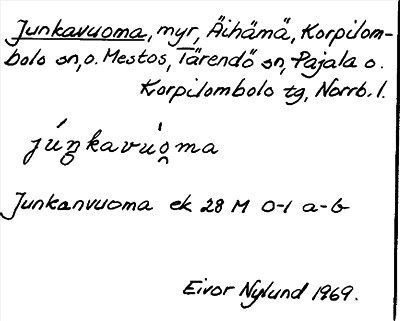 Junkavuoma, myr, Äihämä, Korpilom-
bolo sn, o. Mestos, Tärendö sn, Pajala o.
Korpilombolo tg, Norrb. l.
júŋkavu̯o̯ma
Junkanvuoma ek 28 M 0-1 a-b
Eivor Nylund 1969.